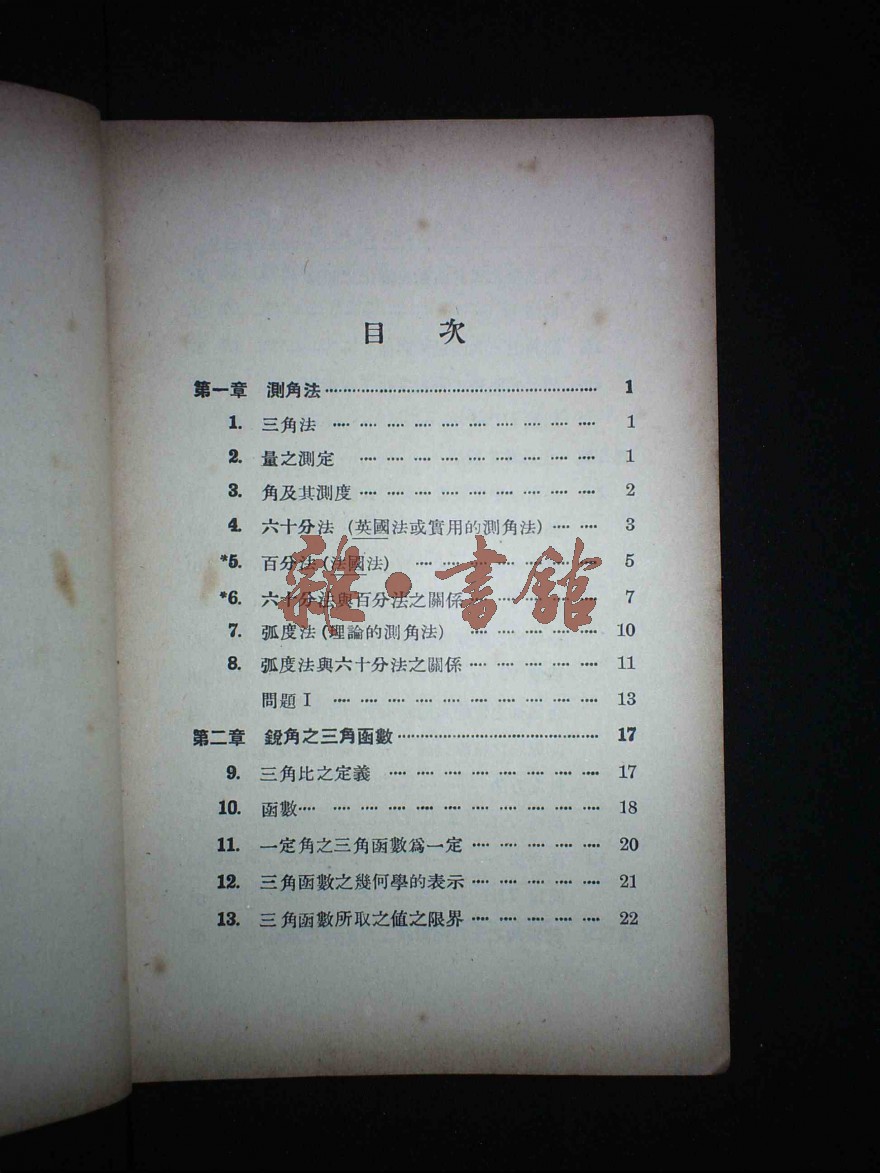 目 次
第一章 測角法 1
1. 三角法 1
2. 量之測定 1
3. 角及其測度 2
4. 六十分法 (英國法或實用的測角法) 3
*5. 百分法 (法國法) 5
*6. 六十分法與百分法之關係 7
7. 弧度法 (理論的測角法) 10
8. 弧度法與六十分法之關係 11
問題 I 13
第二章 銳角之三角函數 17
9. 三角比之定義 17
10. 函數 18
11. 一定角之三角函數爲一定 20
12. 三角函數之幾何學的表示 21
13. 三角函數所取之值之限界 22
雜·書館